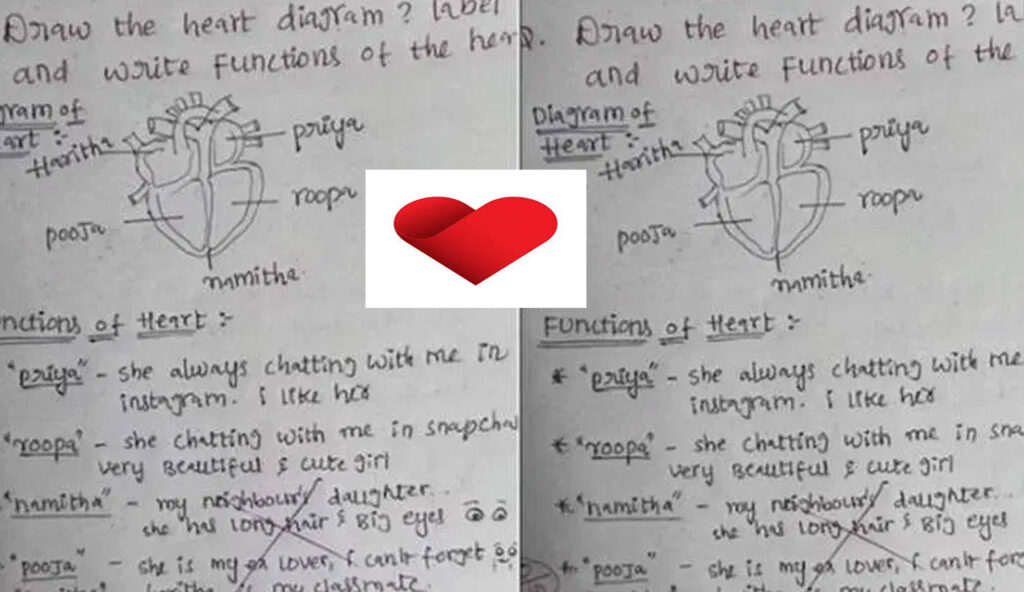 Draw the heart diagram? label
and write Functions of the hear
gram of
art :-
Haritha
priya
roopa
pooja
namitha
nctions of Heart :-
"priya" - she always chatting with me in
instagram. i like her
"roopa" - she chatting with me in snapcha
very Beautiful & cute girl
"namitha" - my neighbour's daughter..
she has long hair & Big eyes
"pooja" - she is my ex lover, i can't forget
my classmate.
Q. Draw the heart diagram? la
and write Functions of the
Diagram of
Heart :-
Haritha
priya
roopa
pooja
namitha
Functions of Heart :-
* "priya" - she always chatting with me
instagram. i like her
* "roopa" - she chatting with me in sna
very Beautiful & cute girl
* "namitha" - my neighbour's daughter...
she has long hair & Big eyes
* "pooja" - she is my ex lover, i can't for
my classmate.